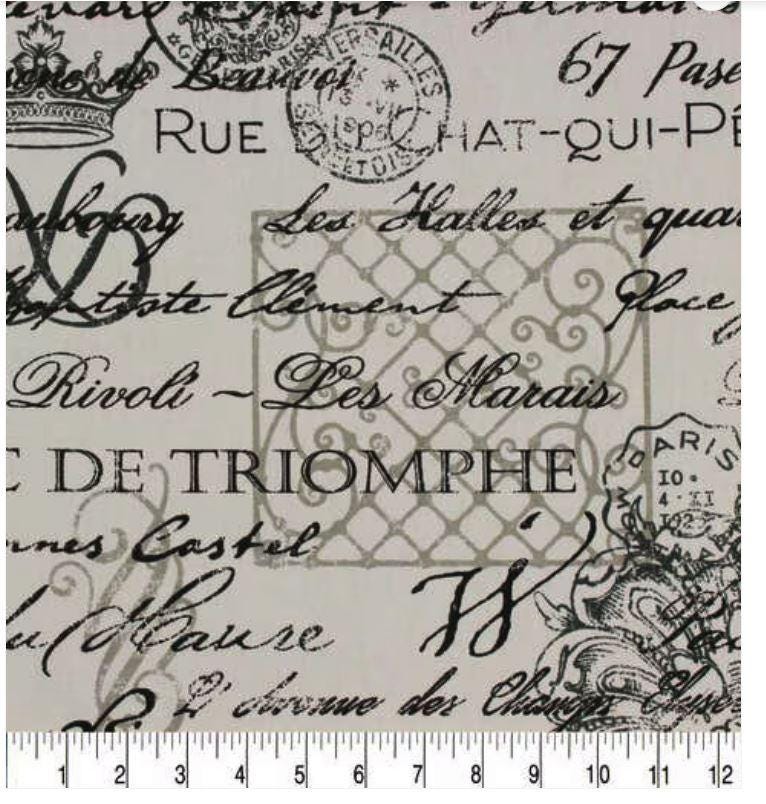 Saint - Germain
PARIS
de Beauvoi
67 Pase
VERSAILLES
RUE HAT-QUI-PÊ
aubourg Les Halles et quar
Baptiste Clément Place
Rivoli ~ Les Marais
DE TRIOMPHE
PARIS
10
4 · II
nnes Castel
du Havre
W
L' Avenue des Champs Elysee
1 2 3 4 5 6 7 8 9 10 11 12